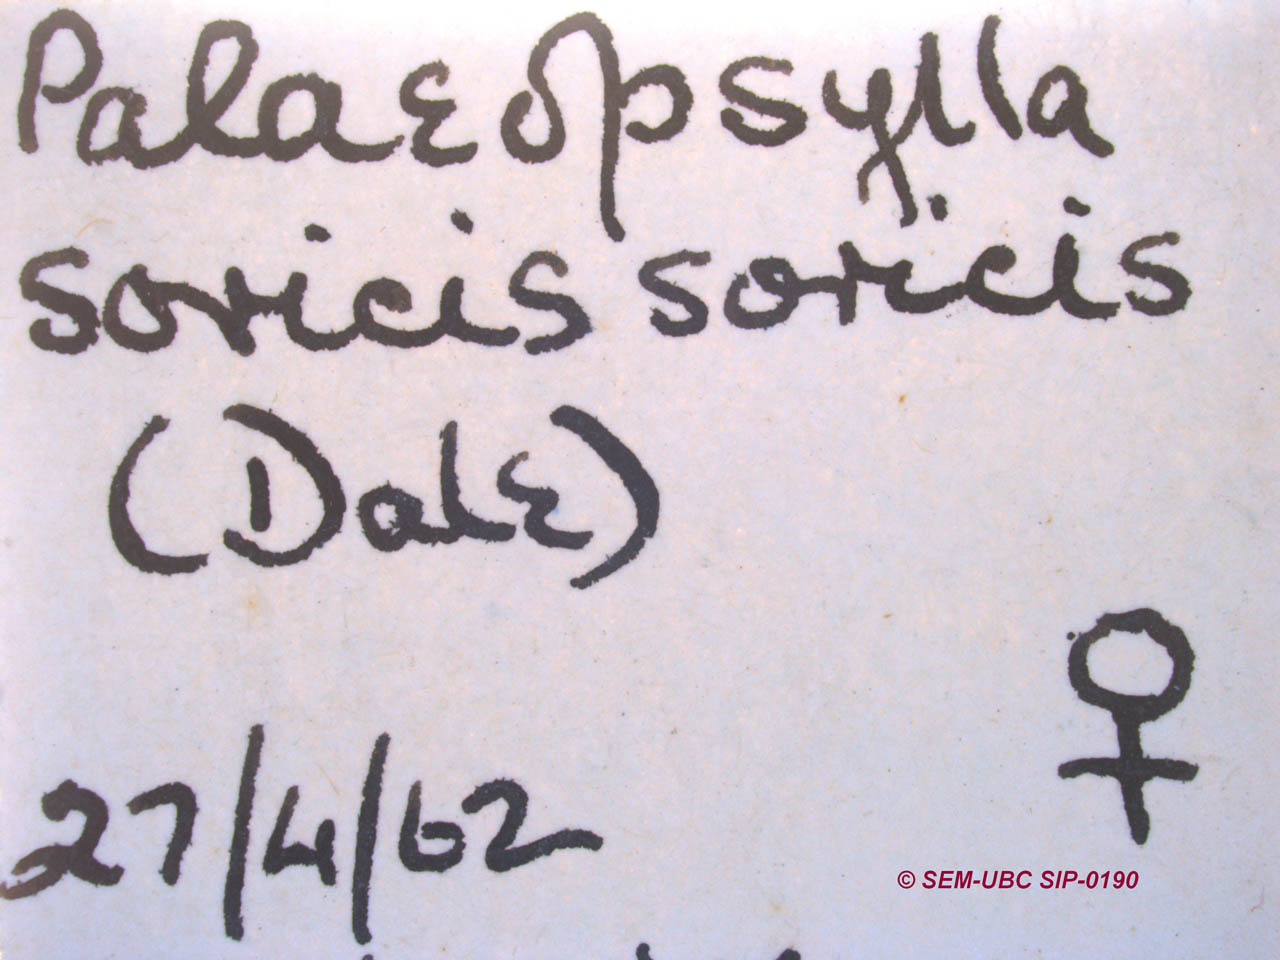 Palaeopsylla
soricis soricis
(Dale)
♀
27/4/62
© SEM-UBC SIP-0190